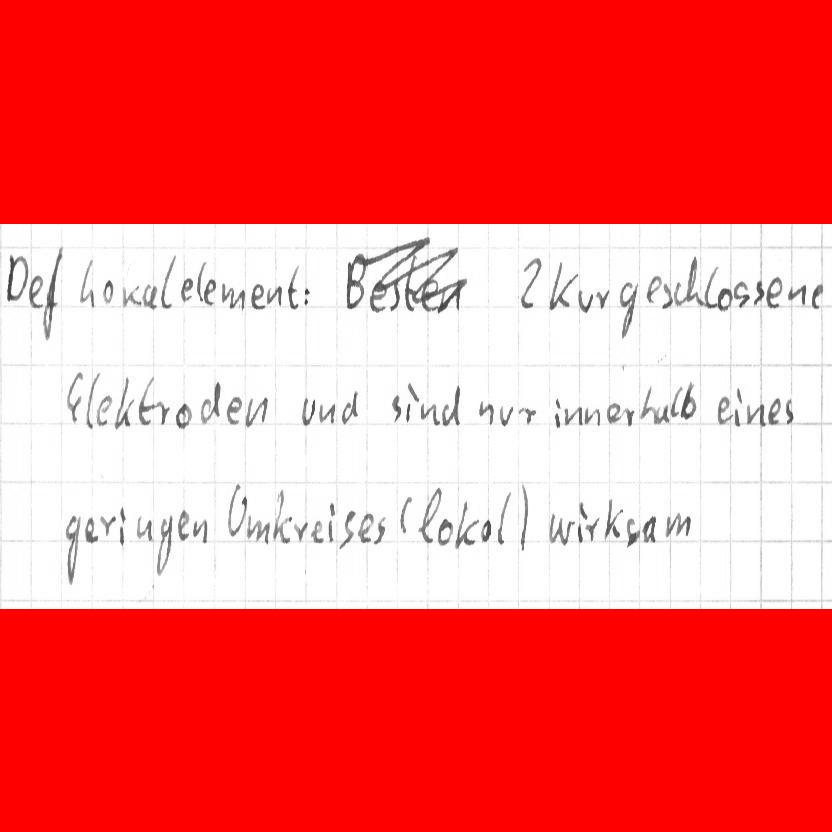 Def Lokalelement: Besten 2 Kurgeschlossene
Elektroden und sind nur innerhalb eines
geringen Umkreises (lokal) wirksam